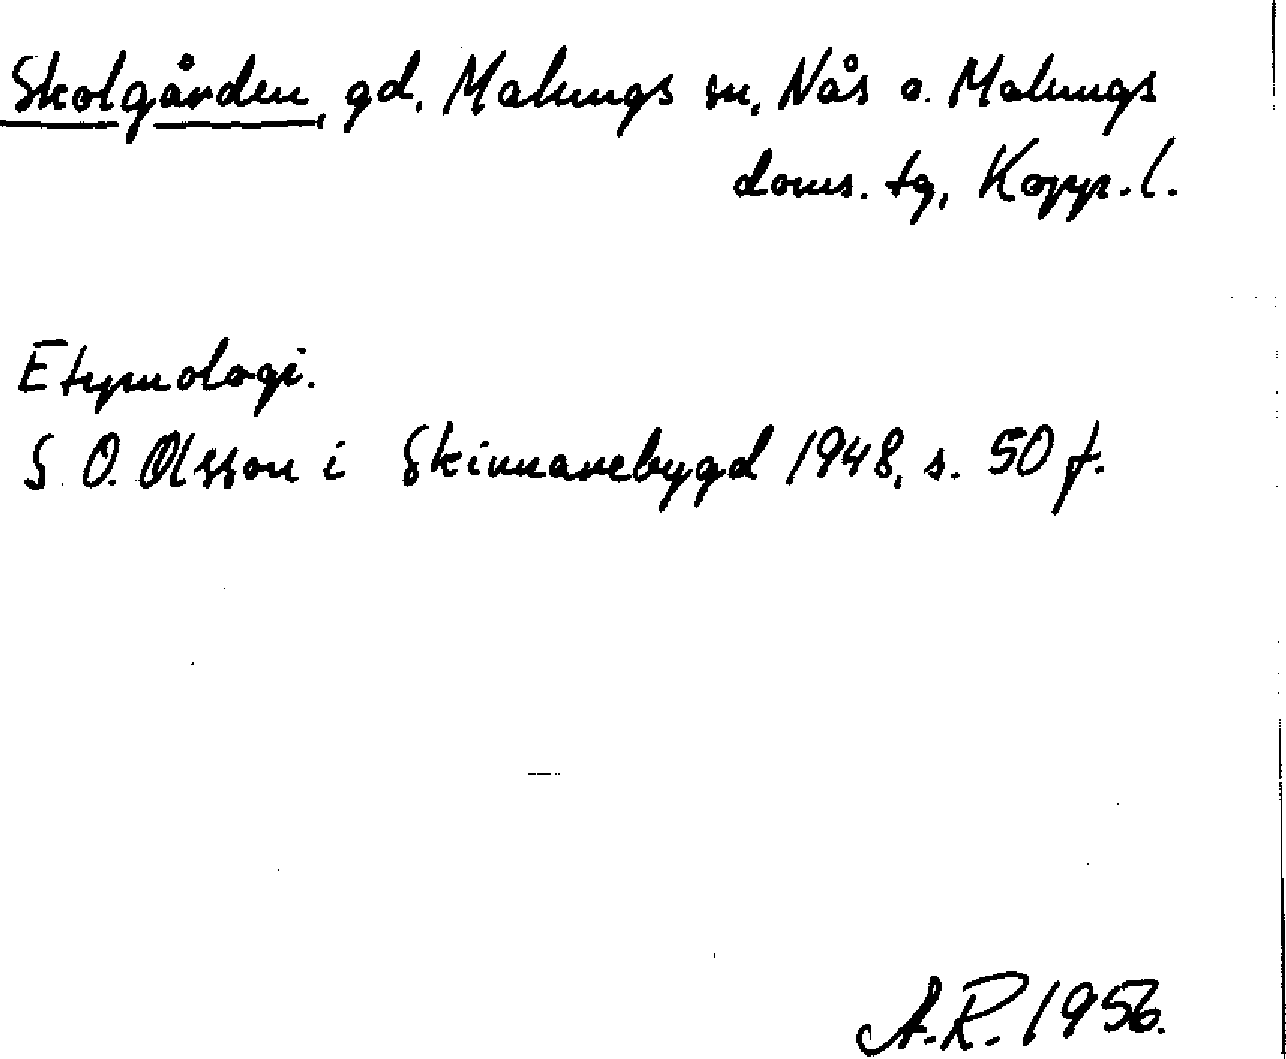 Skolgården, gd, Malungs sn, Nås o. Malungs
doms. tg, Kopp. l.
Etymologi.
S. O. Olsson i Skinnarebygd 1948, s. 50 f.
A.R. 1956.